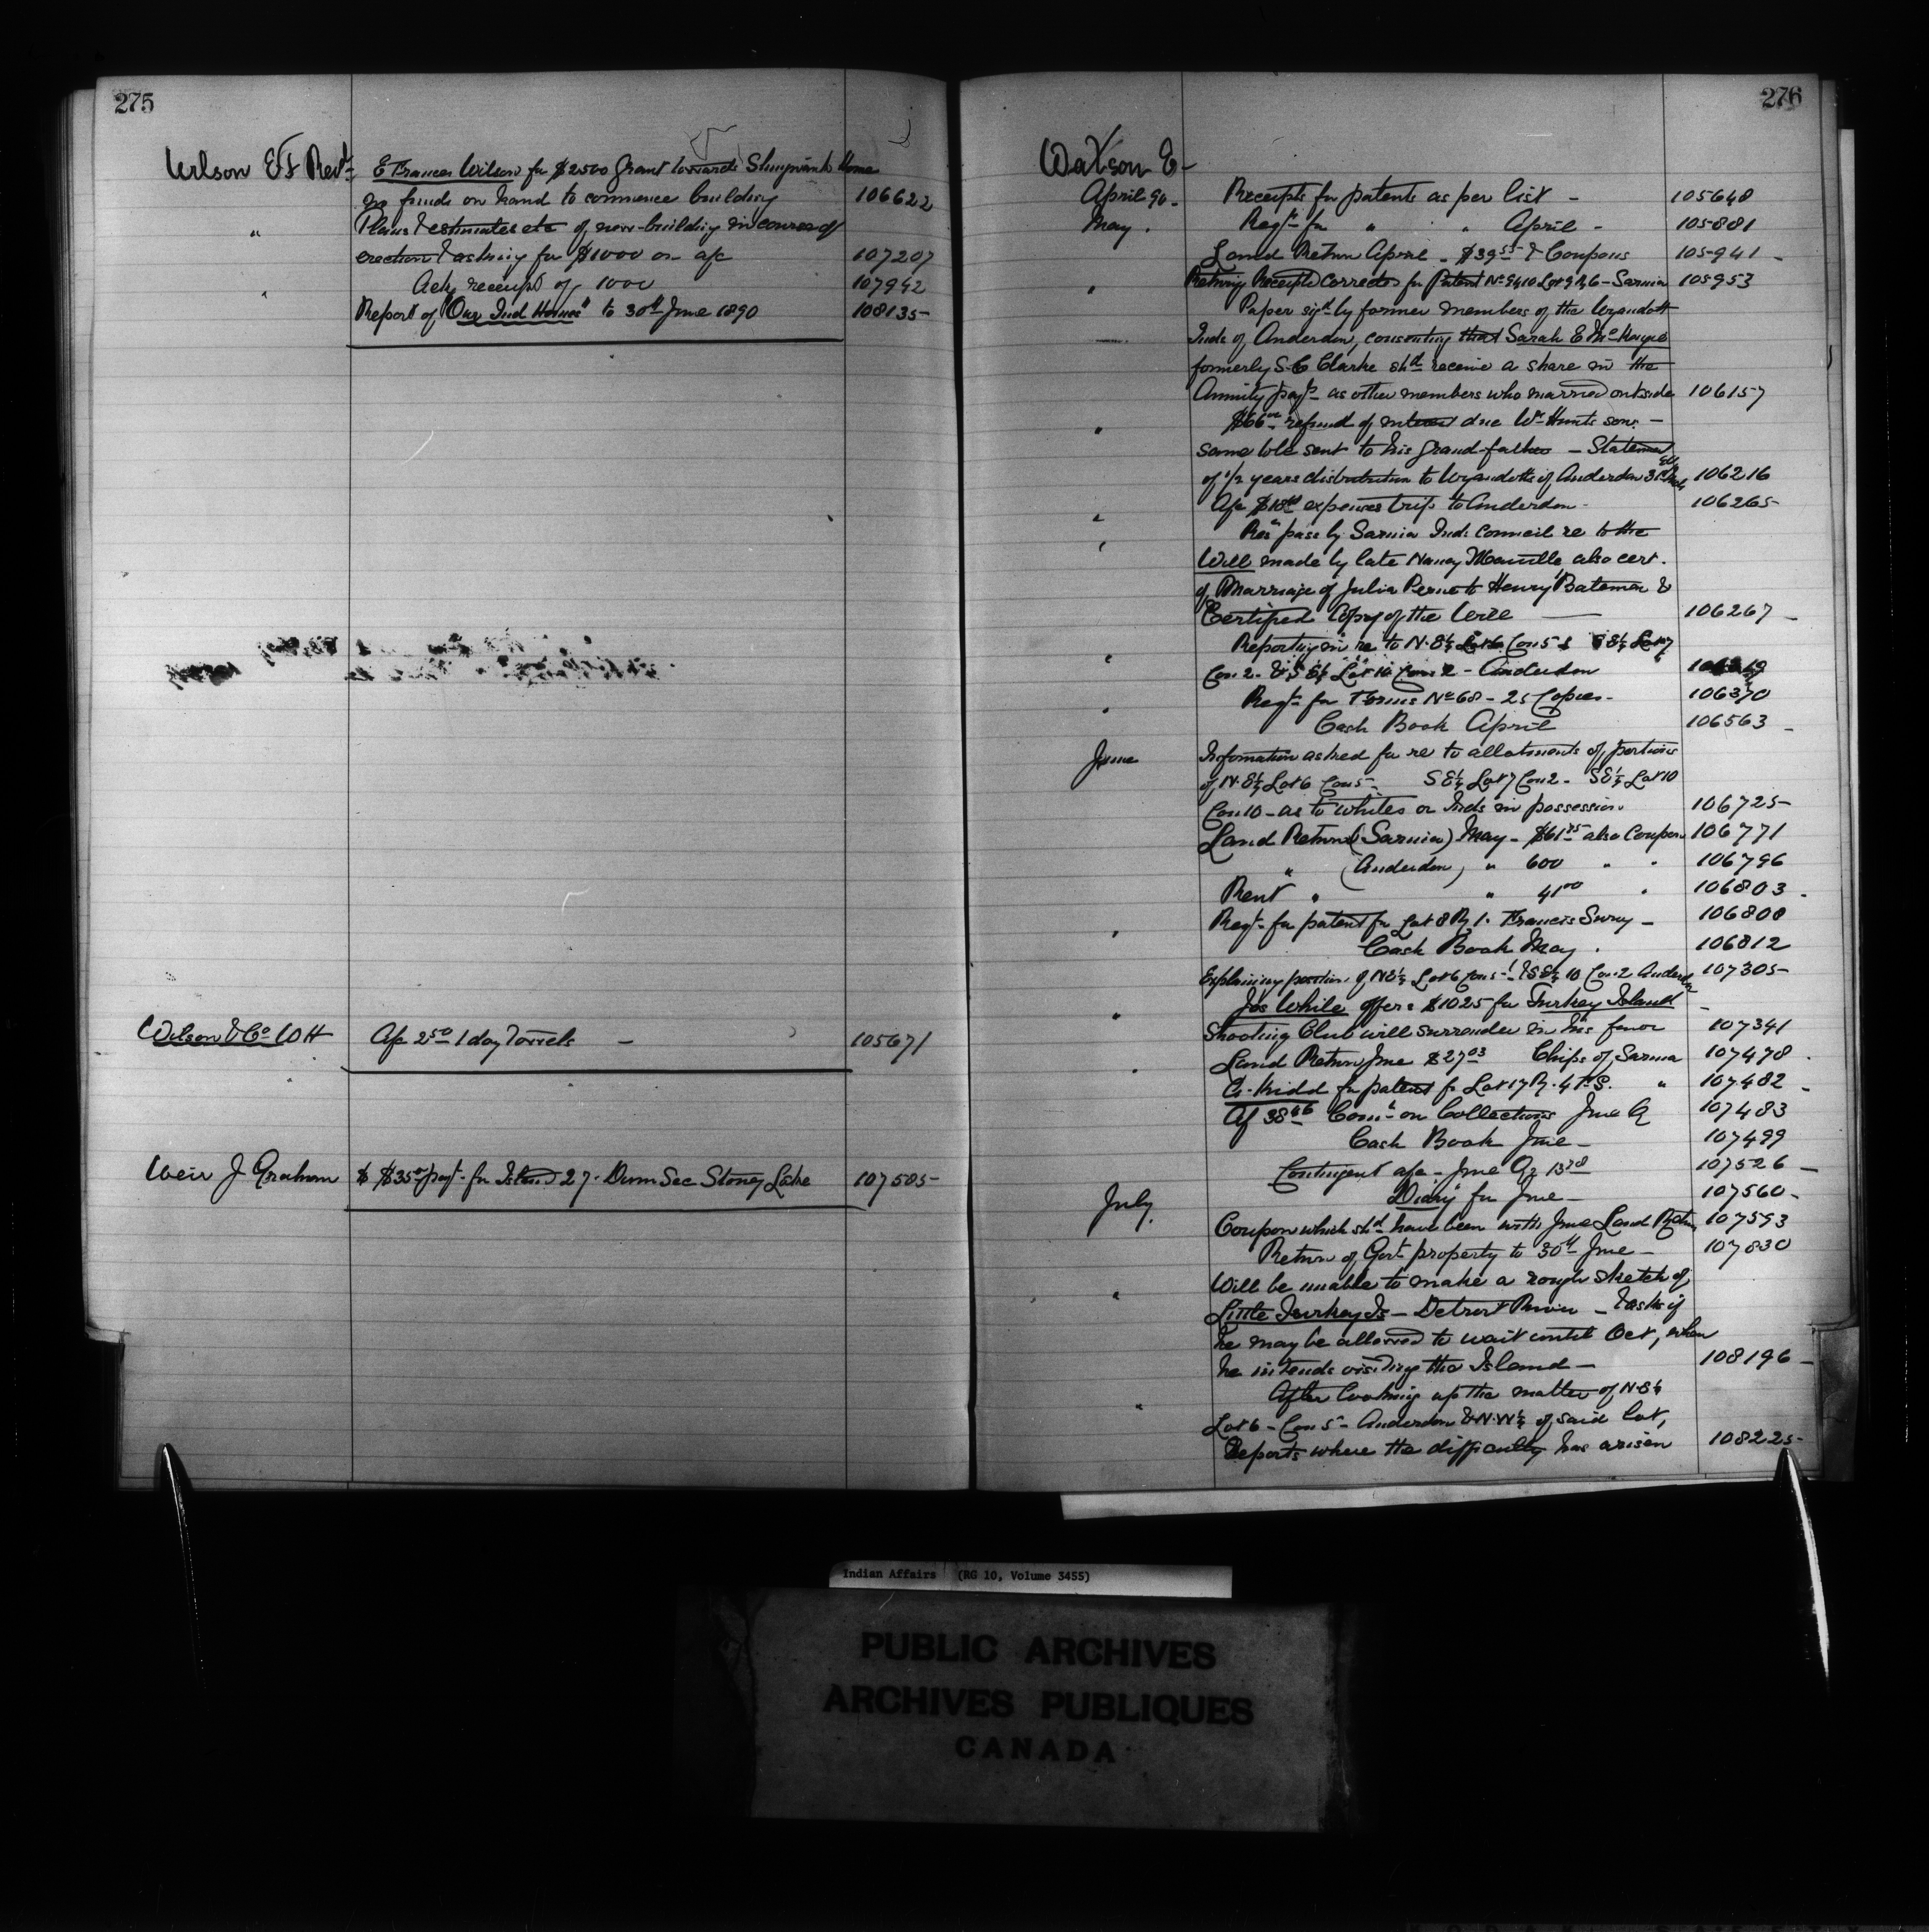 275
Wilson E F Revd E Frances Wilson for $2500 grant towards Shingwauk Home
no funds on hand to commence building 106622
" Plans & estimates etc of new building in course of
erection & asking for $1000 on a/c 107207
" Ack receipt of 1000 107942
Report of "Our Ind Homes" to 30th June 1890 108135
Wilson & Co W H A/c 2.50 1 day Vessels — 105671
Weir J Graham $ $35.00 payt for Island 27. Dum Sec Stoney Lake 107505
276
Watson E-
April 90. Receipts for patents as per list - 105648
May. Reqt for " " April - 105881
Land Return April - $39.55 & Coupons 105941
" Retning Receipts corrected for Patent No 9410 Lot 9 R 6 - Sarnia 105953
Paper sigd by former members of the Wyandott
Inds of Anderdon, consenting that Sarah E McHayes
formerly S. C Clarke shd receive a share in the
Annuity payt as other members who married outside 106157
" $66.00 refund of interest due Wm Hunts son -
same to be sent to his grand-father - Statement
of 1/2 years distribution to Wyandotts of Anderdon 31st Mch 106216
" A/c $18 expenses trip to Anderdon - 106265
" Resn pass by Sarnia Inds Council re to the
Will made by late Nancy Manville also cert.
of Marriage of Julia Penn to Henry Bateman &
Certified Copy of the Will 106267
" Reporting in re to N.E¼ Lot 6 Con 5 & S E¼ Lot 7
Con 2. & S E¼ Lot 10 Con 2 - Anderdon
" Reqt for Forms No 68 - 25 Copies - 106370
Cash Book April 106563
June Information asked for re to allotments of portions
of N.E¼ Lot 6 Con 5 - S E¼ Lot 7 Con 2 - S E¼ Lot 10
Con 10 - as to whites or Inds in possession. 106725
Land Return (Sarnia) May - $61.75 also Coupon 106771
" (Anderdon) " 600 " " 106796
Rent " " 41.00 " 106803
" Reqt for patent for Lot 8 R 1. Francis - 106808
Cash Book May. 106812
Explaining position of N E¼ Lot 6 Con 5 & S E¼ 10 Con 2 Anderdon 107305
" Jos White offers $1025 for Turkey Island
Shooting Club will surrender in his favor 107341
" Land Return June $27.03 Chips of Sarnia 107478
A. Kidd for patent for Lot 17 R. 4 T.S. " 107482
A/c 38.46 Comn on Collections June Qr 107483
Cash Book June - 107499
Contingent a/c - June Qr 13.78 107526
Diary for June - 107560
July. Coupon which shd have been with June Land Retn 107593
Return of Govt property to 30th June - 107830
" Will be unable to make a rough sketch of
Little Turkey Is - Detroit River - & asks if
he may be allowed to wait until Oct, when
he intends visiting the Island - 108196
" After looking up the matter of N. E¼
Lot 6 - Con 5 - Anderdon & N. W¼ of said lot,
Reports where the difficulty has arisen 108225
Indian Affairs (RG 10, Volume 3455)
PUBLIC ARCHIVES
ARCHIVES PUBLIQUES
CANADA